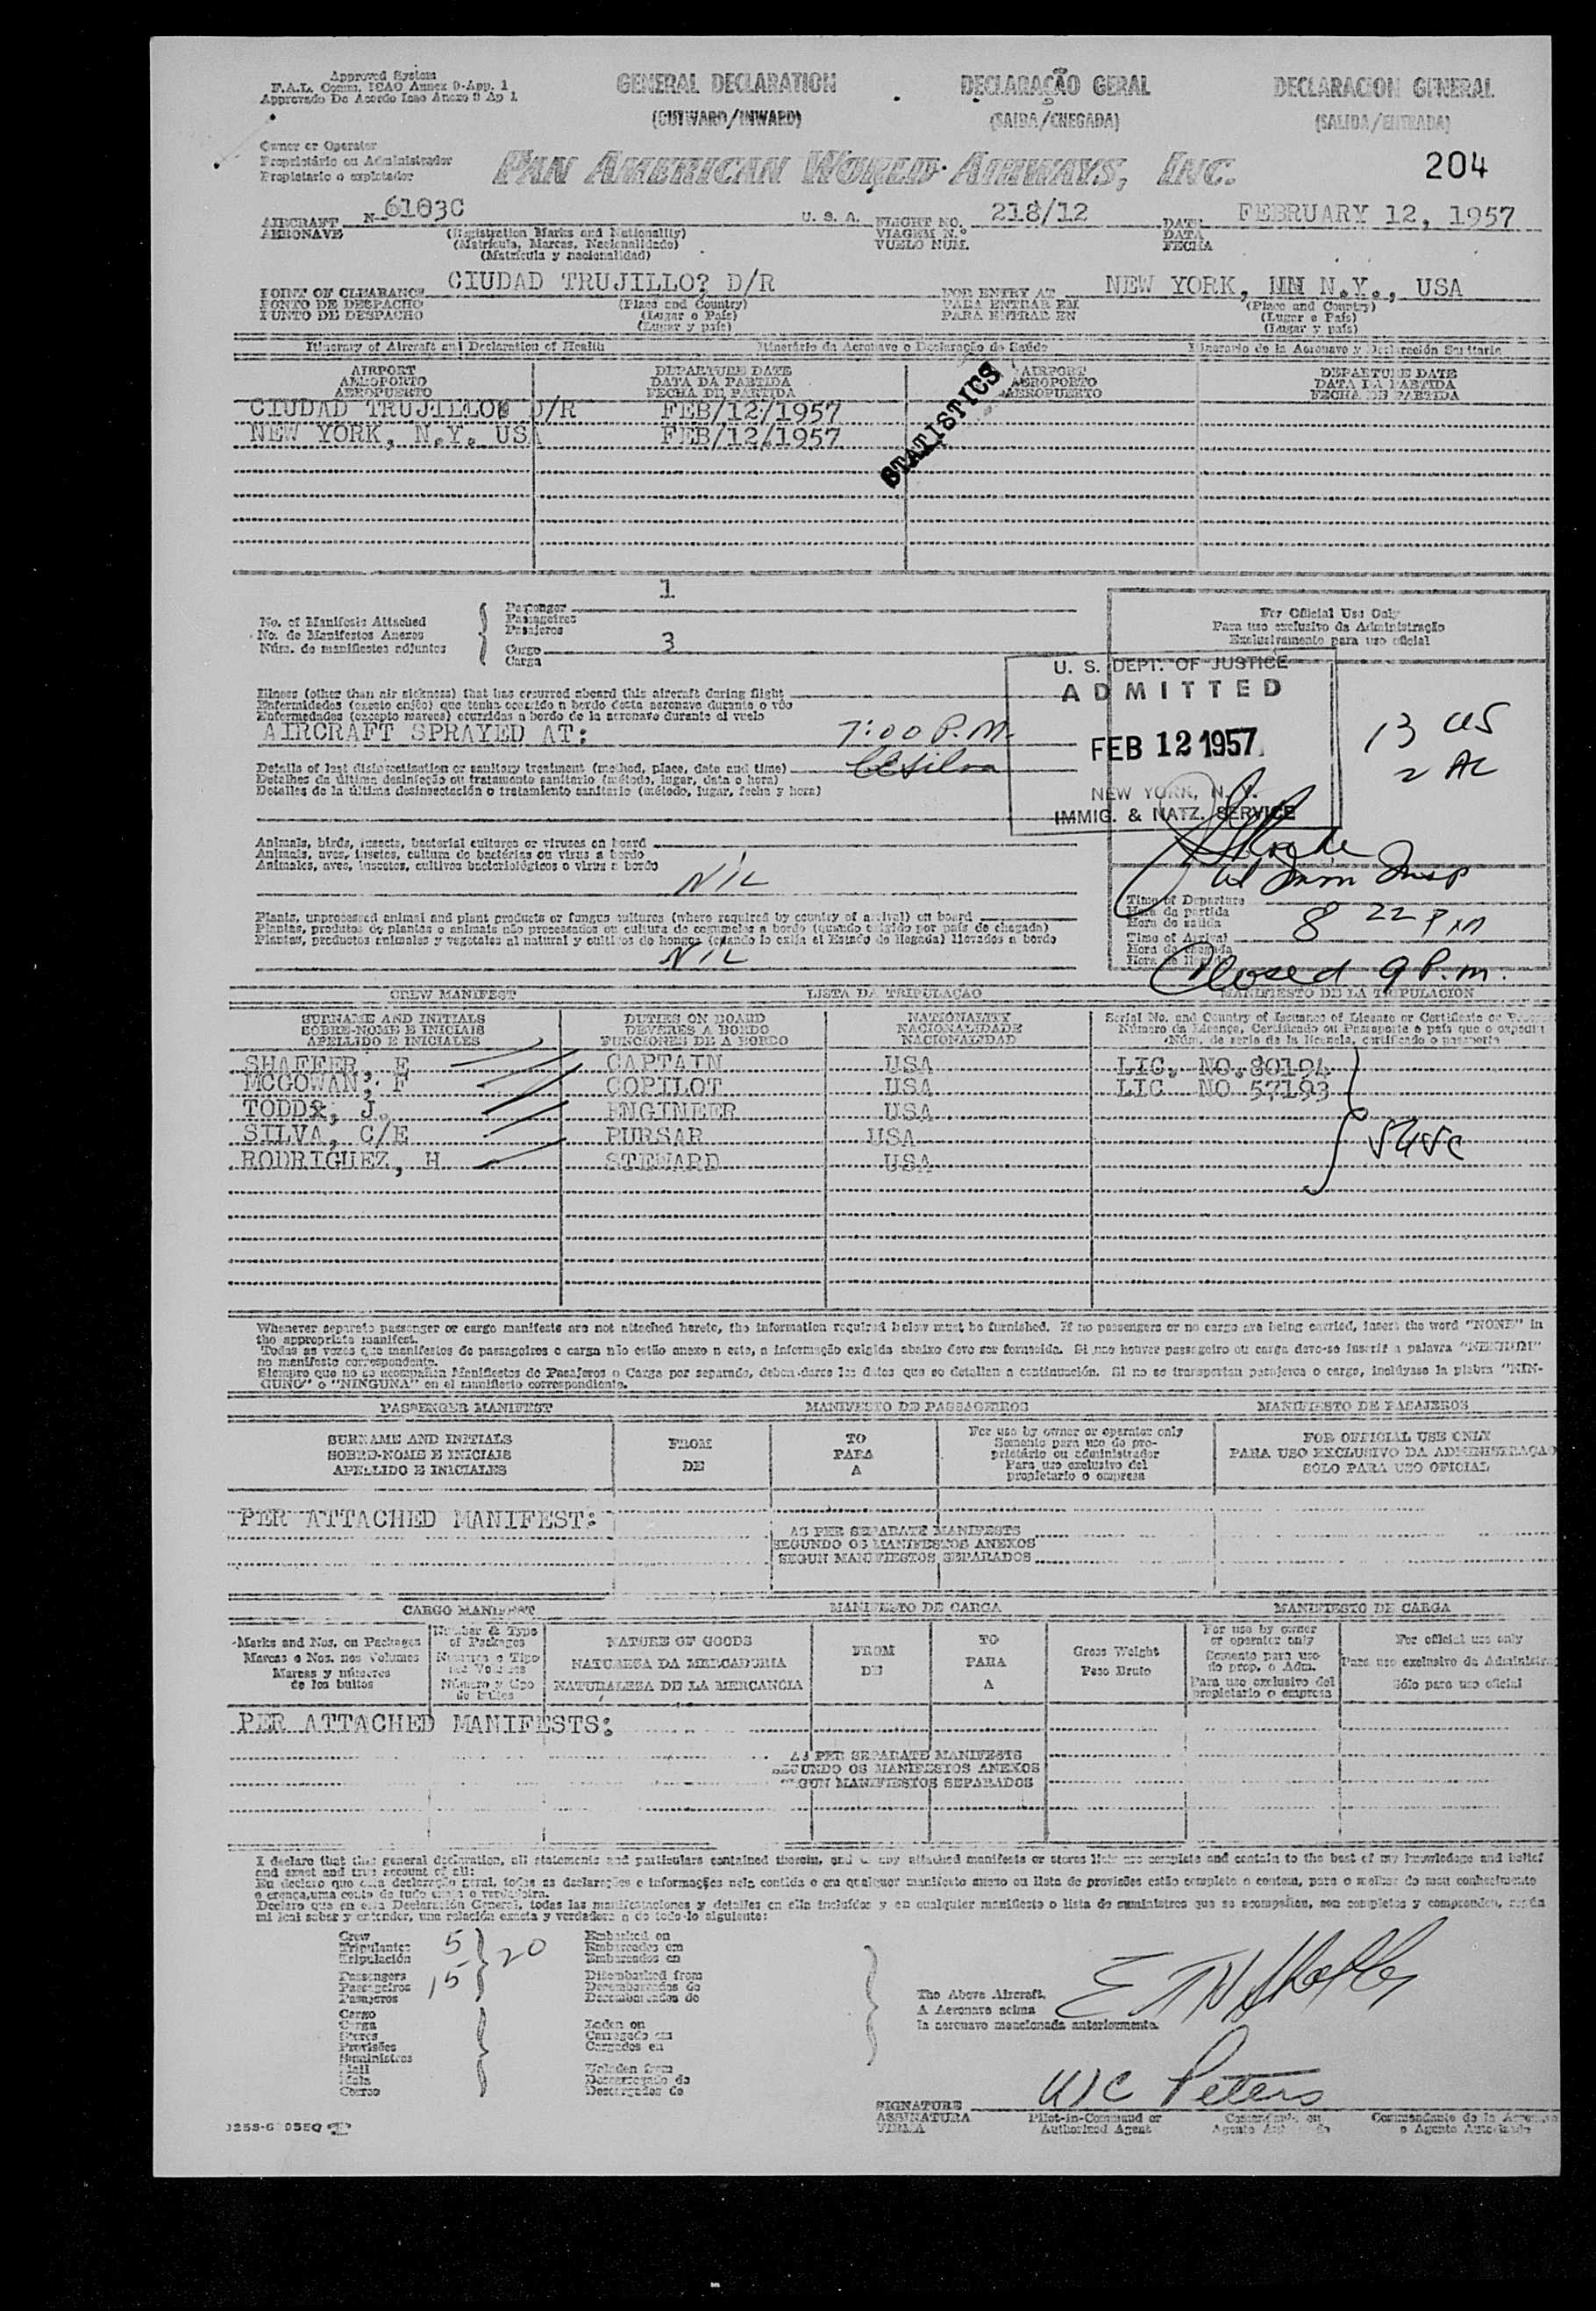 Approved System
F.A.L. Comm. ICAO Annex 9-App. 1
Approvado De Acordo Icao Anexo 9 Ap 1
GENERAL DECLARATION
(OUTWARD/INWARD)
DECLARAÇÃO GERAL
(SAIDA/CHEGADA)
DECLARACION GENERAL
(SALIDA/ENTRADA)
Owner or Operator
Proprietário ou Administrador
Propietario o explotador
PAN AMERICAN WORLD AIRWAYS, INC.
204
AIRCRAFT N- 6103C U. S. A. FLIGHT NO. 218/12 DATE FEBRUARY 12, 1957
AERONAVE (Registration Marks and Nationality) VIAGEM N.º DATA
(Matrícula, Marcas, Nacionalidade) VUELO NUM. FECHA
(Matrícula y nacionalidad)
POINT OF CLEARANCE CIUDAD TRUJILLO? D/R FOR ENTRY AT NEW YORK, NN N.Y., USA
PONTO DE DESPACHO (Place and Country) PARA ENTRAR EM (Place and Country)
PUNTO DE DESPACHO (Lugar o País) PARA ENTRAR EN (Lugar o País)
(Lugar y país) (Lugar y país)
Itinerary of Aircraft and Declaration of Health Itinerário da Aeronave e Declaração de Saúde Itinerario de la Aeronave y Declaración Sanitaria
AIRPORT DEPARTURE DATE AIRPORT DEPARTURE DATE
AEROPORTO DATA DA PARTIDA AEROPORTO DATA DA PARTIDA
AEROPUERTO FECHA DE PARTIDA AEROPUERTO FECHA DE PARTIDA
CIUDAD TRUJILLO D/R FEB/12/1957
NEW YORK, N.Y. USA FEB/12/1957
STATISTICS
No. of Manifests Attached
No. de Manifestos Anexos
Núm. de manifiestos adjuntos
Passenger 1
Passageiros
Pasajeros
Cargo 3
Carga
For Official Use Only
Para uso exclusivo da Administração
Exclusivamente para uso oficial
U. S. DEPT. OF JUSTICE
ADMITTED
FEB 12 1957
NEW YORK, N. Y.
IMMIG. & NATZ. SERVICE
13 US
2 AL
Imm Insp
Illness (other than air sickness) that has occurred aboard this aircraft during flight
Enfermidades (exceto enjôo) que tenha ocorrido a bordo desta aeronave durante o vôo
Enfermedades (excepto mareos) ocurridas a bordo de la aeronave durante el vuelo
AIRCRAFT SPRAYED AT: 7:00 P.M.
Details of last disinsectisation or sanitary treatment (method, place, date and time) CESilva
Detalhes da última desinfeção ou tratamento sanitario (método, lugar, data e hora)
Detalles de la última desinsectación o tratamiento sanitario (método, lugar, fecha y hora)
Animals, birds, insects, bacterial cultures or viruses on board
Animais, aves, insetos, cultura de bactérias ou virus a bordo
Animales, aves, insectos, cultivos bacteriológicos o virus a bordo
NIL
Plants, unprocessed animal and plant products or fungus cultures (where required by country of arrival) on board
Plantas, produtos de plantas o animais não processados ou cultura de cogumelos a bordo (quando exigido por país de chegada)
Plantas, productos animales y vegetales al natural y cultivos de hongos (cuando lo exija el Estado de llegada) llevados a bordo
NIL
Time of Departure
Hora da partida
Hora de salida
Time of Arrival 8 22 PM
Hora de chegada
Hora de llegada
Closed 9 P.m.
CREW MANIFEST LISTA DA TRIPULAÇÃO MANIFIESTO DE LA TRIPULACION
SURNAME AND INITIALS DUTIES ON BOARD NATIONALITY Serial No. and Country of Issuance of License or Certificate or
SOBRE-NOME E INICIAIS DEVERES A BORDO NACIONALIDADE Número da Licença, Certificado ou Passaporte e país que o expediu
APELLIDO E INICIALES FUNCIONES DE A BORDO NACIONALIDAD Núm. de serie de la licencia, certificado o pasaporte
SHAFFER, E CAPTAIN USA LIC. NO. 80194
MCGOWAN, F COPILOT USA LIC NO 57193
TODD, J. ENGINEER USA
SILVA, C/E PURSAR USA
RODRIGUEZ, H STEWARD USA
5 USC
Whenever separate passenger or cargo manifests are not attached hereto, the information required below must be furnished. If no passengers or no cargo are being carried, insert the word "NONE" in
the appropriate manifest.
Todas as vezes que manifestos de passageiros e carga não estão anexo a este, a informação exigida abaixo deve ser fornecida. Si não houver passageiro ou carga deve-se inserir a palavra "NENHUM"
no manifesto correspondente.
Siempre que no se acompañen Manifiestos de Pasajeros o Carga por separado, deben darse los datos que se detallan a continuación. Si no se transportan pasajeros o cargo, inclúyase la plabra "NIN-
GUNO" o "NINGUNA" en el manifiesto correspondiente.
PASSENGER MANIFEST MANIFESTO DE PASSAGEIROS MANIFIESTO DE PASAJEROS
SURNAME AND INITIALS FROM TO For use by owner or operator only FOR OFFICIAL USE ONLY
SOBRE-NOME E INICIAIS DE PARA Somente para uso do pro- PARA USO EXCLUSIVO DA ADMINISTRAÇAO
APELLIDO E INICIALES A prietário ou administrador SOLO PARA USO OFICIAL
Para uso exclusivo del
propietario o empresa
PER ATTACHED MANIFEST:
AS PER SEPARATE MANIFESTS
SEGUNDO OS MANIFESTOS ANEXOS
SEGUN MANIFIESTOS SEPARADOS
CARGO MANIFEST MANIFESTO DE CARGA MANIFIESTO DE CARGA
Marks and Nos. on Packages Number & Type of Packages NATURE OF GOODS FROM TO Gross Weight For use by owner or operator only For official use only
Marcas e Nos. nos Volumes Numero e Tipo NATUREZA DA MERCADORIA DE PARA Peso Bruto Somente para uso do prop. o Adm. Para uso exclusivo da Administra
Marcas y números de los bultos Número y tipo de bultos NATURALEZA DE LA MERCANCIA A Para uso exclusivo del propietario o empresa Sólo para uso oficial
PER ATTACHED MANIFESTS:
AS PER SEPARATE MANIFESTS
SEGUNDO OS MANIFESTOS ANEXOS
SEGUN MANIFIESTOS SEPARADOS
I declare that this general declaration, all statements and particulars contained therein, and in any attached manifests or stores lists are complete and contain to the best of my knowledge and belief
and exact and true account of all:
Eu declaro que esta declaração geral, todas as declarações e informações nela contida e em qualquer manifesto anexo ou lista de provisões estão completo e contem, para o melhor do meu conhecimento
e crença, uma conta de tudo exata e verdadeira.
Declaro que en esta Declaración General, todas las manifestaciones y detalles en ella incluídos y en cualquier manifiesto o lista de suministros que se acompañan, son completos y comprenden, según
mi leal saber y entender, una relación exacta y verdadera o de todo lo siguiente:
Crew 5 Embarked on
Tripulantes 20 Embarcados em
Tripulación Embarcados en
Passengers 15 Disembarked from
Passageiros Desembarcados do
Pasajeros Desembarcados de
Cargo
Carga Laden on
Stores Carregado em
Provisões Cargados en
Suministros
Mail Unladen from
Mala Descarregado do
Correo Descargados de
The Above Aircraft.
A Aeronave acima
la aeronave mencionada anteriormente.
W C Peters
SIGNATURE
ASSINATURA Pilot-in-Command or Comandante ou Commandante de la Aeronave
FIRMA Authorized Agent Agente Autorizado o Agente Autorizado